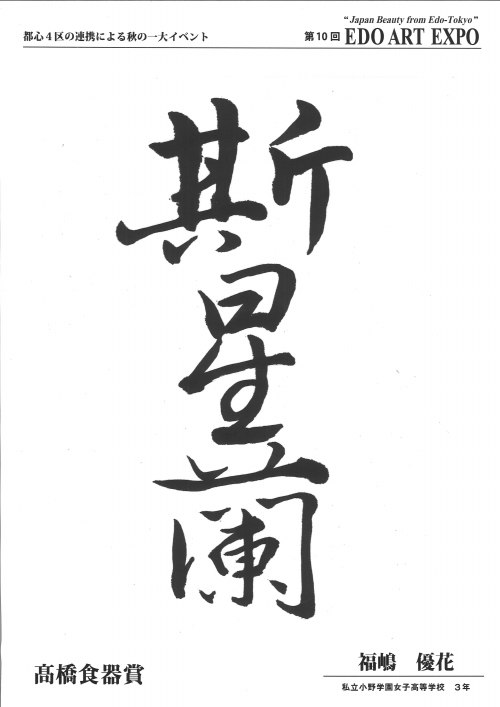 都心4区の連携による秋の一大イベント
"Japan Beauty from Edo-Tokyo"
第10回 EDO ART EXPO
斯
星
蘭
髙橋食器賞
福嶋 優花
私立小野学園女子高等学校 3年